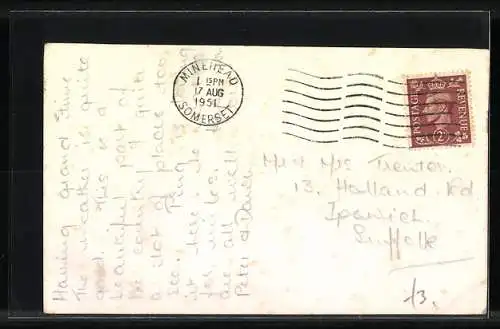 MINEHEAD
1 15PM
17 AUG
1951
SOMERSET
POSTAGE
REVENUE
2
Having grand time
The weather is quite
good. This is a
beautiful part of
the country & quite
a lot of places too
see.
it here
for miles.
are all well
Peter & David
Mr & Mrs Trenter
13. Holland Rd
Ipswich
Suffolk
/3.